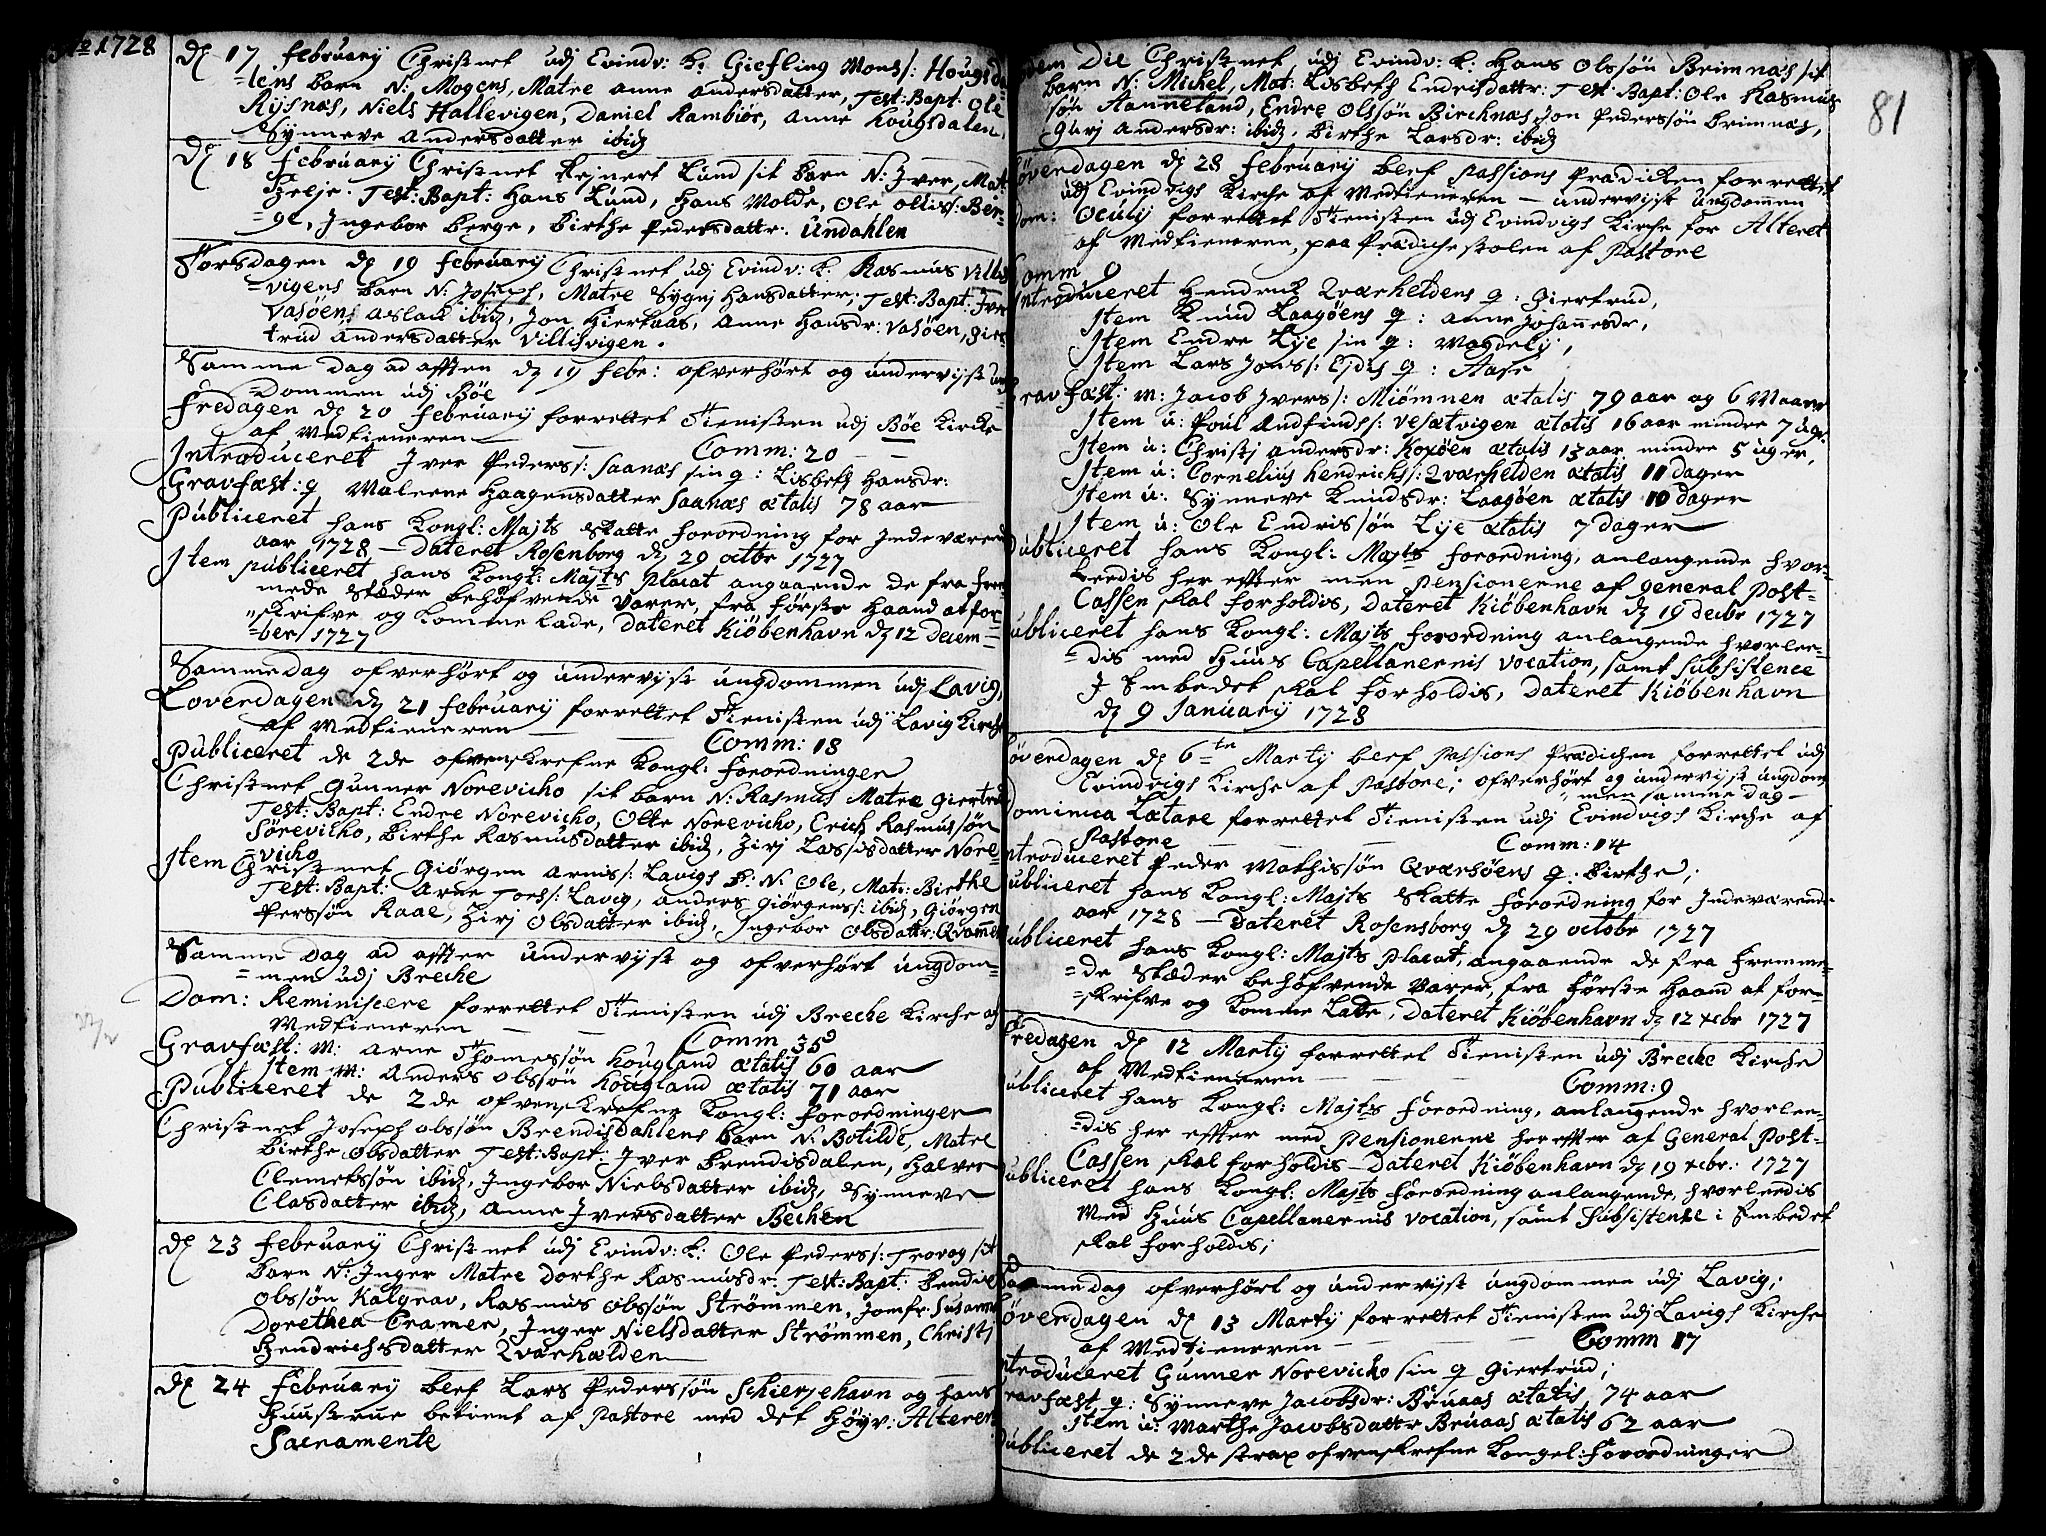 1728
17 february Christnet udj Evindv: k: Giefling Mons/: Hougsda
=lens barn N: Mogens, Matre anne andersdatter, Test: Bapt: Ole
Rysnæs, Niels Hallevigen, Daniel Rambiør, Anne Hougsdalen,
Synneve Andersdatter ibid
18 february Christnet Rejnert Lund sit barn N: Iver, Mat:
Helje. Test: Bapt: Hans Lund, Hans Molde, Ole ollis/: Ber-
=ge, Ingebor Berge, Birthe Pedersdattr: Undahlen
Torsdagen d 19 february Christnet udj Evindv: k: Rasmus Villis
=vigens barn N: Joseph, Matre Sygnj Hansdatter, Test: Bapt: Iver
Vasøen, aslack ibid, Jon Hierkaas, Anne Hansdr: Vasøen, gier=
trud Andersdatter Villisvigen.
Samme dag ad afften d 19 febr: ofverhørt og undervijst ung
=dommen udj Bøe
fredagen d 20 february forrettet Tienisten udj Bøe Kirke
af Medtieneren — — Comm: 20 —
Introduceret Iver Peders/: Saanæs sin q: Lisbeth Hansdr:
Gravfæst: q Maleene Haagensdatter Saanæs ætatis 78 aar
Publiceret hans Kongl: Majts Skatte forordning for Indeværend
aar 1728 — Dateret Rosenborg d 29 octbr 1727
Item publiceret hans Kongl: Majts placat angaaende de fra frem
mede stæder behøfvende Varer, fra første Haand at for-
=skrifve og komme lade, Dateret Kiøbenhavn d 12 Decem=
=ber 1727
Samme dag ofverhørt og undervijst ungdommen udj Lavig,
Loverdagen d 21 february forrettet Tienisten udj Lavig Kirche
af Medtieneren — — Comm: 18
Publiceret de 2de ofvenskrefne Kongl: forordninger
Christnet Gunner Norevicho sit barn N: Rasmus Matre giertrud
Test: Bapt: Endre Norevicho, Otte Norevicho, Erich Rasmussøn
Sørevicho, Birthe Rasmusdatter ibid, Zirj Lassisdatter Nore-
=vicho
Item Christnet Giørgen Arnis/: Lavigs b: N: Ole, Matr: Birthe
Test: Bapt: Arne Tors/: Lavig, anders Giørgens/: ibid, Giørgen
Persøn Raae, Zirj Olsdatter ibid, Ingebor Olsdattr: Qvamme
Samme dag ad after undervijst og ofverhørt ungdom=
=men udj Breche
Dom: Reminiscere forrettet Tienisten udj Breche Kirche af
Medtieneren — — Comm 35
Gravfæst: M: Arne Thomessøn hougland ætatis 60 aar
Item M: Anders olssøn hougland ætatis 71 aar
Publiceret de 2de ofvenskrefne Kongl: forordninger
Christnet Joseph olssøn Brendisdahlens barn N: Botilde, Matre
Birthe Olsdatter Test: Bapt: Iver Brendisdalen, Halver
Clemetssøn ibid, Ingebor Nielsdatter ibid, Synneve
Clasdatter ibid, Anne Iversdatter Bechen
23 february Christnet udj Evindv: k: Ole Peders/: Trovog sit
barn N: Inger Matre Dorthe Rasmusdr: Test: Bapt: Bendix
olssøn Kalgrav, Rasmus olssøn Strømmen, Jomfr: Susanne
Dorethea Cramer, Inger Nielsdatter Strømmen, Christj
Hendrichsdatter Qvarhælden
24 february blef Lars Pederssøn Schierjehavn og hans
Huustrue betient af Pastore med det Høyv: Alterens
Sacramente
81
Die Christnet udj Evindv: k: Hans Olssøn Brimnæs sit
barn N: Michel, Mat: Lisbeth Endrisdattr: Test: Bapt: Ole Rasmus
søn Hanneland, Endre Olssøn Birchnæs, Jon Pederssøn Brimnæs,
Gurj Andersdr: ibid, Birthe Larsdr: ibid
Løverdagen d 28 february blef passions Prædicken forrettet
udj Evindvigs Kirche af Medtieneren — undervijst ungdommen
Dom: Oculj forrettet Tienisten udj Evindvigs Kirche for Alteret
af Medtieneren, paa Prædichestolen af Pastore
Comm 9
Introduceret Hendrick Qvarheldens q: Giertrud,
Item Knud Laagøens q: anne Johannesdr,
Item Endre Lije sin q: Magdelj,
Item Lars Jons/: Ejdes q: Aase
Gravfæst: M: Jacob Ivers/: Miømnen ætatis 79 aar og 6 Maaner
Item u: Poul Andfinds/: Vesætvigen ætatis 16 aar mindre 7 uger
Item u: Christj Andersdr: Koxøen ætatis 13 aar mindre 5 uger,
Item u: Cornelius hendrichs/: Qvarhelden ætatis 11 dager
Item u: Synneve Knudsdr: Laagøen ætatis 10 dager
Item u: Ole Endrissøn Lije ætatis 7 dager
Publiceret hans Kongl: Majts forordning, anlangende hvor-
leedis her efter med Pensionerne af general Post-
Cassen skal forholdis, Dateret Kiøbenhavn d 19 decbr 1727
Publiceret hans Kongl: Majts forordning anlangende hvorlee-
=dis med Huus Capellanernis vocation, samt subsistence
I Embedet skal forholdis, Dateret Kiøbenhavn
d 9 January 1728
Løverdagen d 6te Marty blef passions Prædichen forrettet udj
Evindvigs Kirche af Pastore; ofverhørt og undervijst ungdom
=men samme dag —
Dominica Lætare forrettet Tienisten udj Evindvigs Kirche af
Pastore — — Comm: 14
Introduceret Peder Mathissøn Qværsøens q: Birthe,
Publiceret hans Kongl: Majts Skatte forordning for Indeværende
aar 1728 — Dateret Rosensborg d 29 octobr 1727
Publiceret hans Kongl: Majts placat, angaaende de fra fremme-
=de Stæder behøfvende Varer, fra første Haand at for-
=skrifve og komme Lade, Dateret Kiøbenhavn d 12 xcbr 1727
Fredagen d 12 Marty forrettet Tienisten udj Breche Kirche
af Medtieneren — — Comm: 9
Publiceret hans Kongl: Majts forordning, anlangende hvorlee-
=dis her effter med pensionerne her effter af General Post-
Cassen skal forholdis — Dateret Kiøbenhavn d 19 xcbr: 1727
Publiceret hans Kongl: Majts forordning anlangende, hvorleedis
Med Huus Capellanernis vocation, samt Subsistence i Embedet
skal forholdis;
Samme dag ofverhørt og undervijst ungdommen udj Lavig;
Løverdagen d 13 Marty forrettet Tienisten udj Lavigs Kirche
af Medtieneren — — Comm 17
Introduceret Gunner Norevicho sin q Giertrud;
Gravfæst q: Synneve Jacobsdr: Bruaas ætatis 74 aar
Item u: Marthe Jacobsdatter Bruaas ætatis 62 aar
Publiceret de 2de strax ofvenskrefne Kongel: forordninger